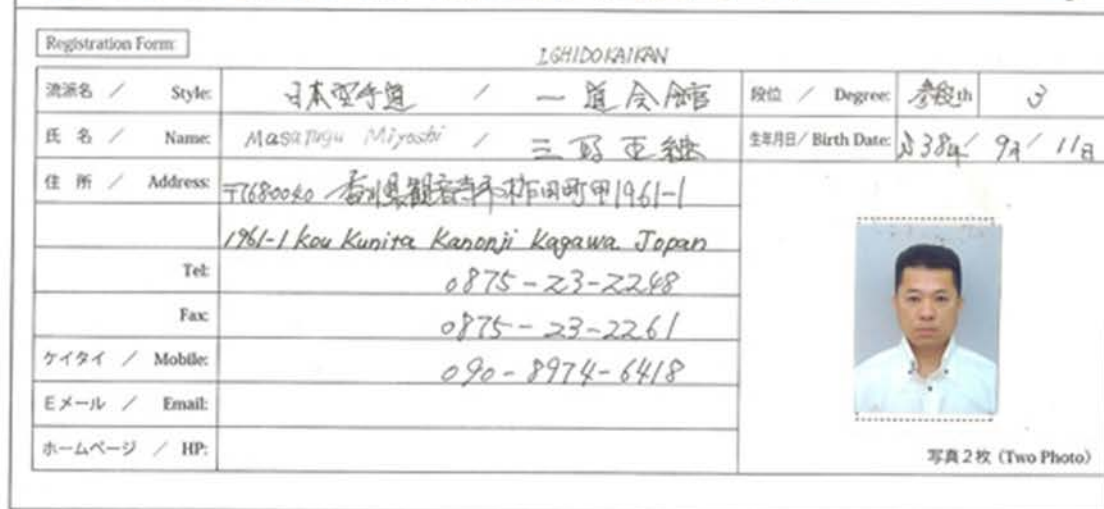 Registration Form:
ICHIDOKAIKAN
流派名 / Style: 日本空手道 / 一道会館 段位 / Degree: 参段th 3
氏 名 / Name: Masatugu Miyoshi / 三好 正継 生年月日 / Birth Date: S38年 / 9月 / 11日
住 所 / Address: 〒7680040 香川県観音寺市柞田町甲1961-1
1961-1 Kou Kunita Kanonji Kagawa Japan
Tel: 0875-23-2248
Fax: 0875-23-2261
ケイタイ / Mobile: 090-8974-6418
Eメール / Email:
ホームページ / HP:
写真2枚 (Two Photo)